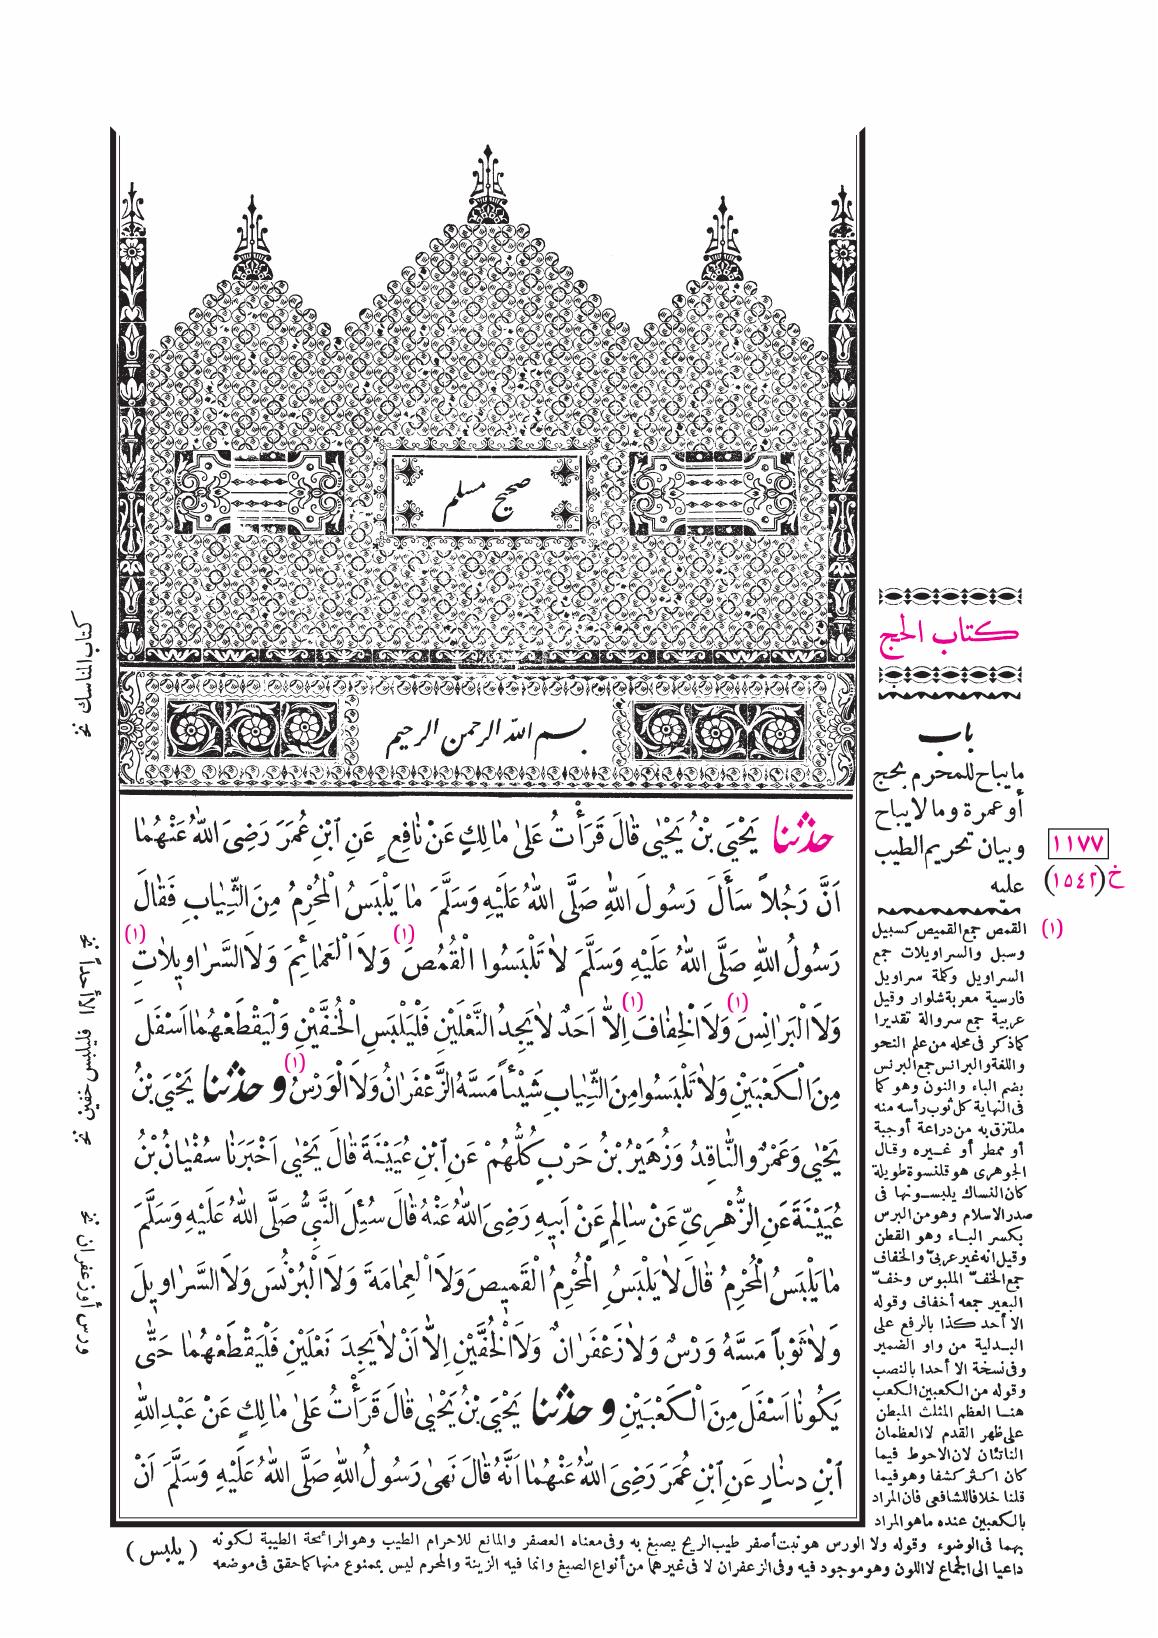 صحيح مسلم
بسم الله الرحمن الرحيم
كتاب الحج
باب
ما يباح للمحرم بحج
أو عمرة وما لا يباح
وبيان تحريم الطيب
عليه
١١٧٧
خ (١٥٤٢)
حَدَّثَنَا يَحْيَى بْنُ يَحْيَى قَالَ قَرَأْتُ عَلَى مَالِكٍ عَنْ نَافِعٍ عَنِ ابْنِ عُمَرَ رَضِيَ اللهُ عَنْهُمَا
اَنَّ رَجُلاً سَأَلَ رَسُولَ اللهِ صَلَّى اللهُ عَلَيْهِ وَسَلَّمَ مَا يَلْبَسُ الْمُحْرِمُ مِنَ الثِّيَابِ فَقَالَ
رَسُولُ اللهِ صَلَّى اللهُ عَلَيْهِ وَسَلَّمَ لَا تَلْبَسُوا الْقُمُصَ (١) وَلَا الْعَمَائِمَ وَلَا السَّرَاوِيلَاتِ (١)
وَلَا الْبَرَانِسَ (١) وَلَا الْخِفَافَ (١) اِلَّا اَحَدٌ لَا يَجِدُ النَّعْلَيْنِ فَلْيَلْبَسِ الْخُفَّيْنِ وَلْيَقْطَعْهُمَا اَسْفَلَ
مِنَ الْكَعْبَيْنِ وَلَا تَلْبَسُوا مِنَ الثِّيَابِ شَيْئاً مَسَّهُ الزَّعْفَرَانُ وَلَا الْوَرْسُ (١) و حَدَّثَنَا يَحْيَى بْنُ
يَحْيَى وَعَمْرٌو النَّاقِدُ وَزُهَيْرُ بْنُ حَرْبٍ كُلُّهُمْ عَنِ ابْنِ عُيَيْنَةَ قَالَ يَحْيَى اَخْبَرَنَا سُفْيَانُ بْنُ
عُيَيْنَةَ عَنِ الزُّهْرِيِّ عَنْ سَالِمٍ عَنْ اَبِيهِ رَضِيَ اللهُ عَنْهُ قَالَ سُئِلَ النَّبِيُّ صَلَّى اللهُ عَلَيْهِ وَسَلَّمَ
مَا يَلْبَسُ الْمُحْرِمُ قَالَ لَا يَلْبَسُ الْمُحْرِمُ الْقَمِيصَ وَلَا الْعِمَامَةَ وَلَا الْبُرْنُسَ وَلَا السَّرَاوِيلَ
وَلَا ثَوْباً مَسَّهُ وَرْسٌ وَلَا زَعْفَرَانٌ وَلَا الْخُفَّيْنِ اِلَّا اَنْ لَا يَجِدَ نَعْلَيْنِ فَلْيَقْطَعْهُمَا حَتَّى
يَكُونَا اَسْفَلَ مِنَ الْكَعْبَيْنِ و حَدَّثَنَا يَحْيَى بْنُ يَحْيَى قَالَ قَرَأْتُ عَلَى مَالِكٍ عَنْ عَبْدِ اللهِ
ابْنِ دِينَارٍ عَنِ ابْنِ عُمَرَ رَضِيَ اللهُ عَنْهُمَا اَنَّهُ قَالَ نَهَى رَسُولُ اللهِ صَلَّى اللهُ عَلَيْهِ وَسَلَّمَ اَنْ
(١) القمص جمع القميص كسبيل
وسبل والسراويلات جمع
السراويل وكلة سراويل
فارسية معربة شلوار وقيل
عربية جمع سروالة تقديرا
كما ذكر فى محله من علم النحو
واللغة والبرانس جمع البرنس
بضم الباء والنون وهو كما
فى النهاية كل ثوب رأسه منه
ملتزق به من دراعة أو جبة
أو ممطر أو غيره وقال
الجوهرى هو قلنسوة طويلة
كان النساك يلبسونها فى
صدر الاسلام وهو من البرس
بكسر الباء وهو القطن
وقيل انه غير عربىّ والخفاف
جمع الخفّ الملبوس وخفّ
البعير جمعه أخفاف وقوله
الا أحد كذا بالرفع على
البدلية من واو الضمير
وفى نسخة الا أحدا بالنصب
وقوله من الكعبين الكعب
هنا العظم المثلث المبطن
على ظهر القدم لا العظمان
الناتئان لان الاحوط فيما
كان اكثر كشفا وهو فيما
قلنا خلافا للشافعى فان المراد
بالكعبين عنده ماهو المراد
بهما فى الوضوء وقوله ولا الورس هو نبت أصفر طيب الريح يصبغ به وفى معناه العصفر والمانع للاحرام الطيب وهو الرائحة الطيبة لكونه
داعيا الى الجماع لا اللون وهو موجود فيه وفى الزعفران لا فى غيرهما من أنواع الصبغ وانما فيه الزينة والمحرم ليس بممنوع منها كما حقق فى موضعه
( يلبس )
كتاب المناسك نخ
الا أحداً نخ
فليلبس خفين نخ
ورس أو زعفران نخ